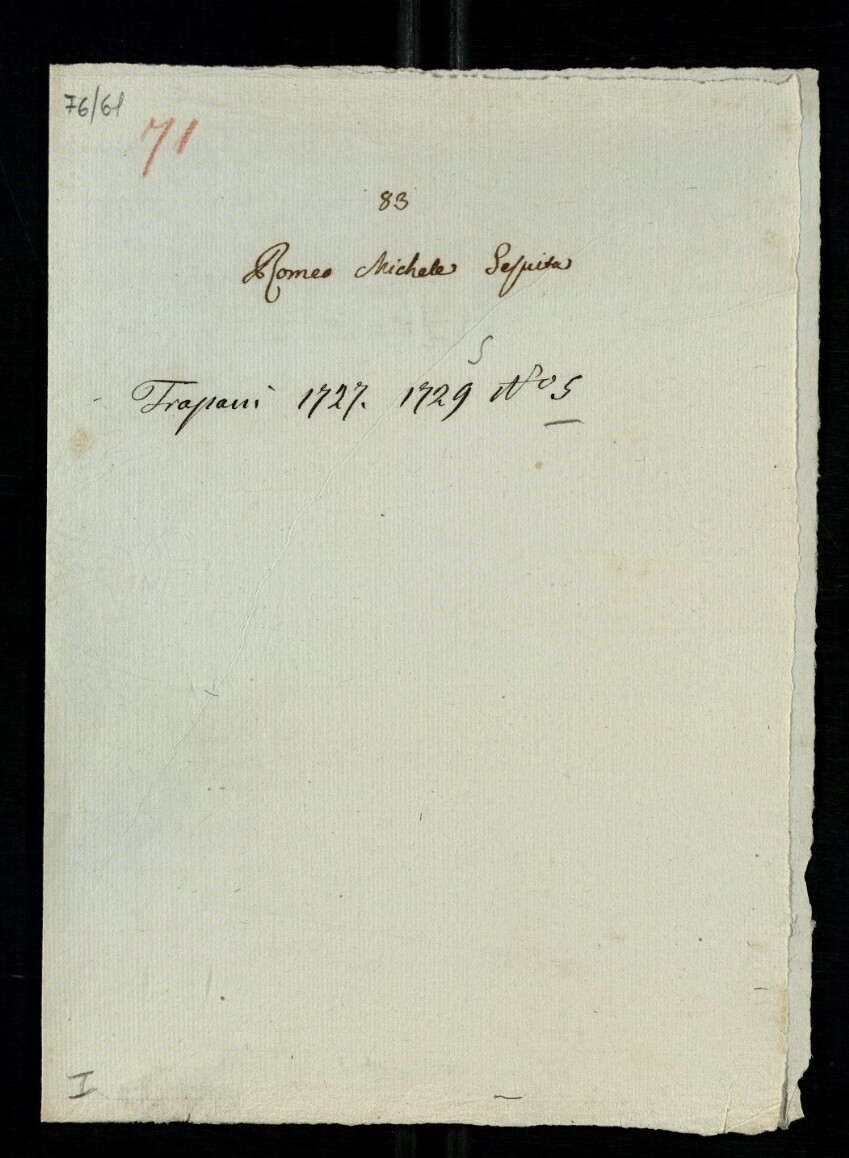 76/61
71
83
Romeo Michele Gesuita
5
Trapani 1727. 1729 No 5
I